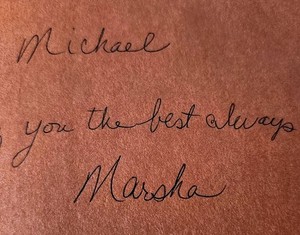 Michael
you the best always
Marsha